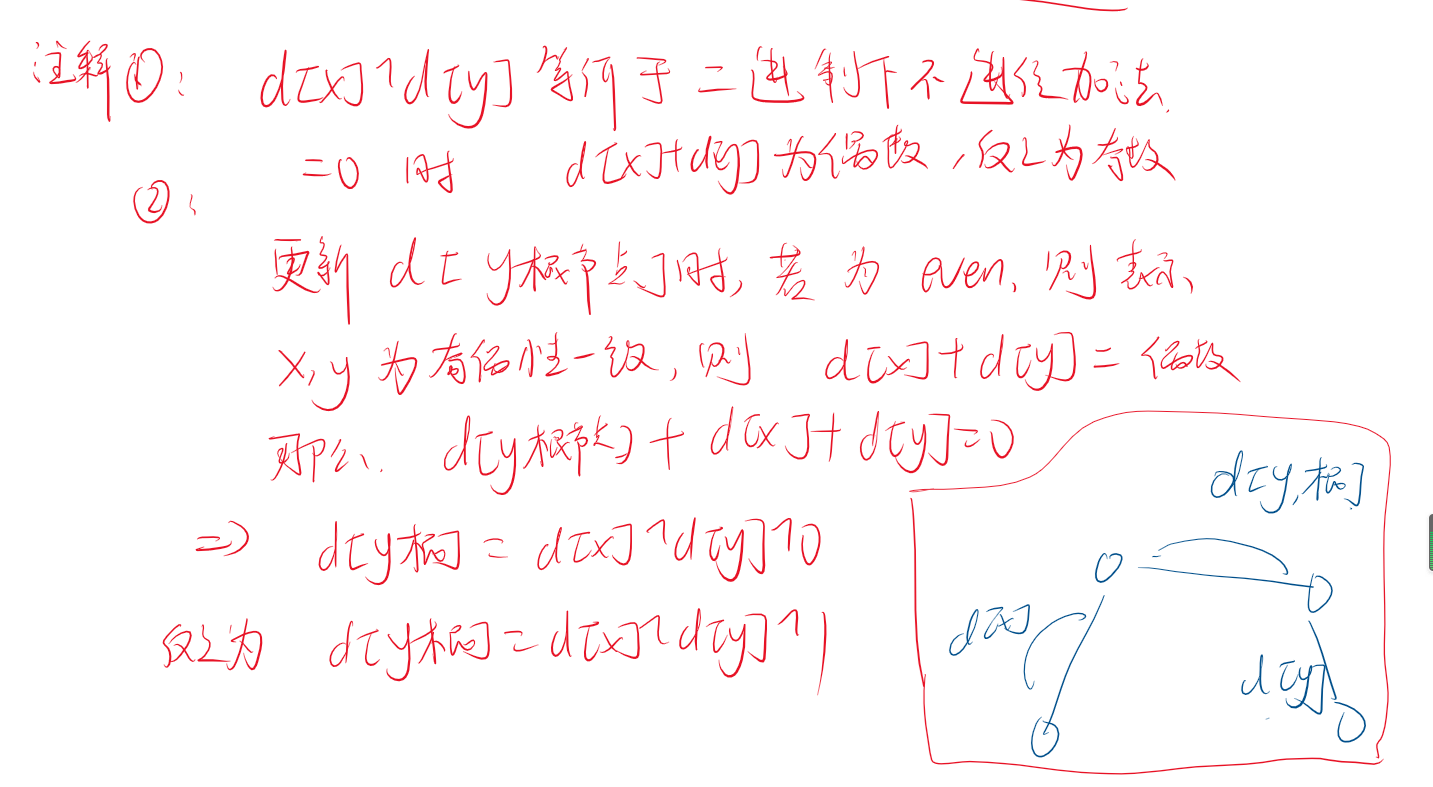 注释①: d[x]^d[y]等价于二进制下不进位加法.
=0 时 d[x]+d[y]为偶数,反之为奇数
②:
更新 d[y根节点]时,若为 even,则表示、
x,y 为奇偶性一致,则 d[x]+d[y]=偶数
那么. d[y根节点]+d[x]+d[y]=0
=> d[y根]=d[x]^d[y]^0
反之为 d[y根]=d[x]^d[y]^1
d[y,根]
d[x]
d[y]